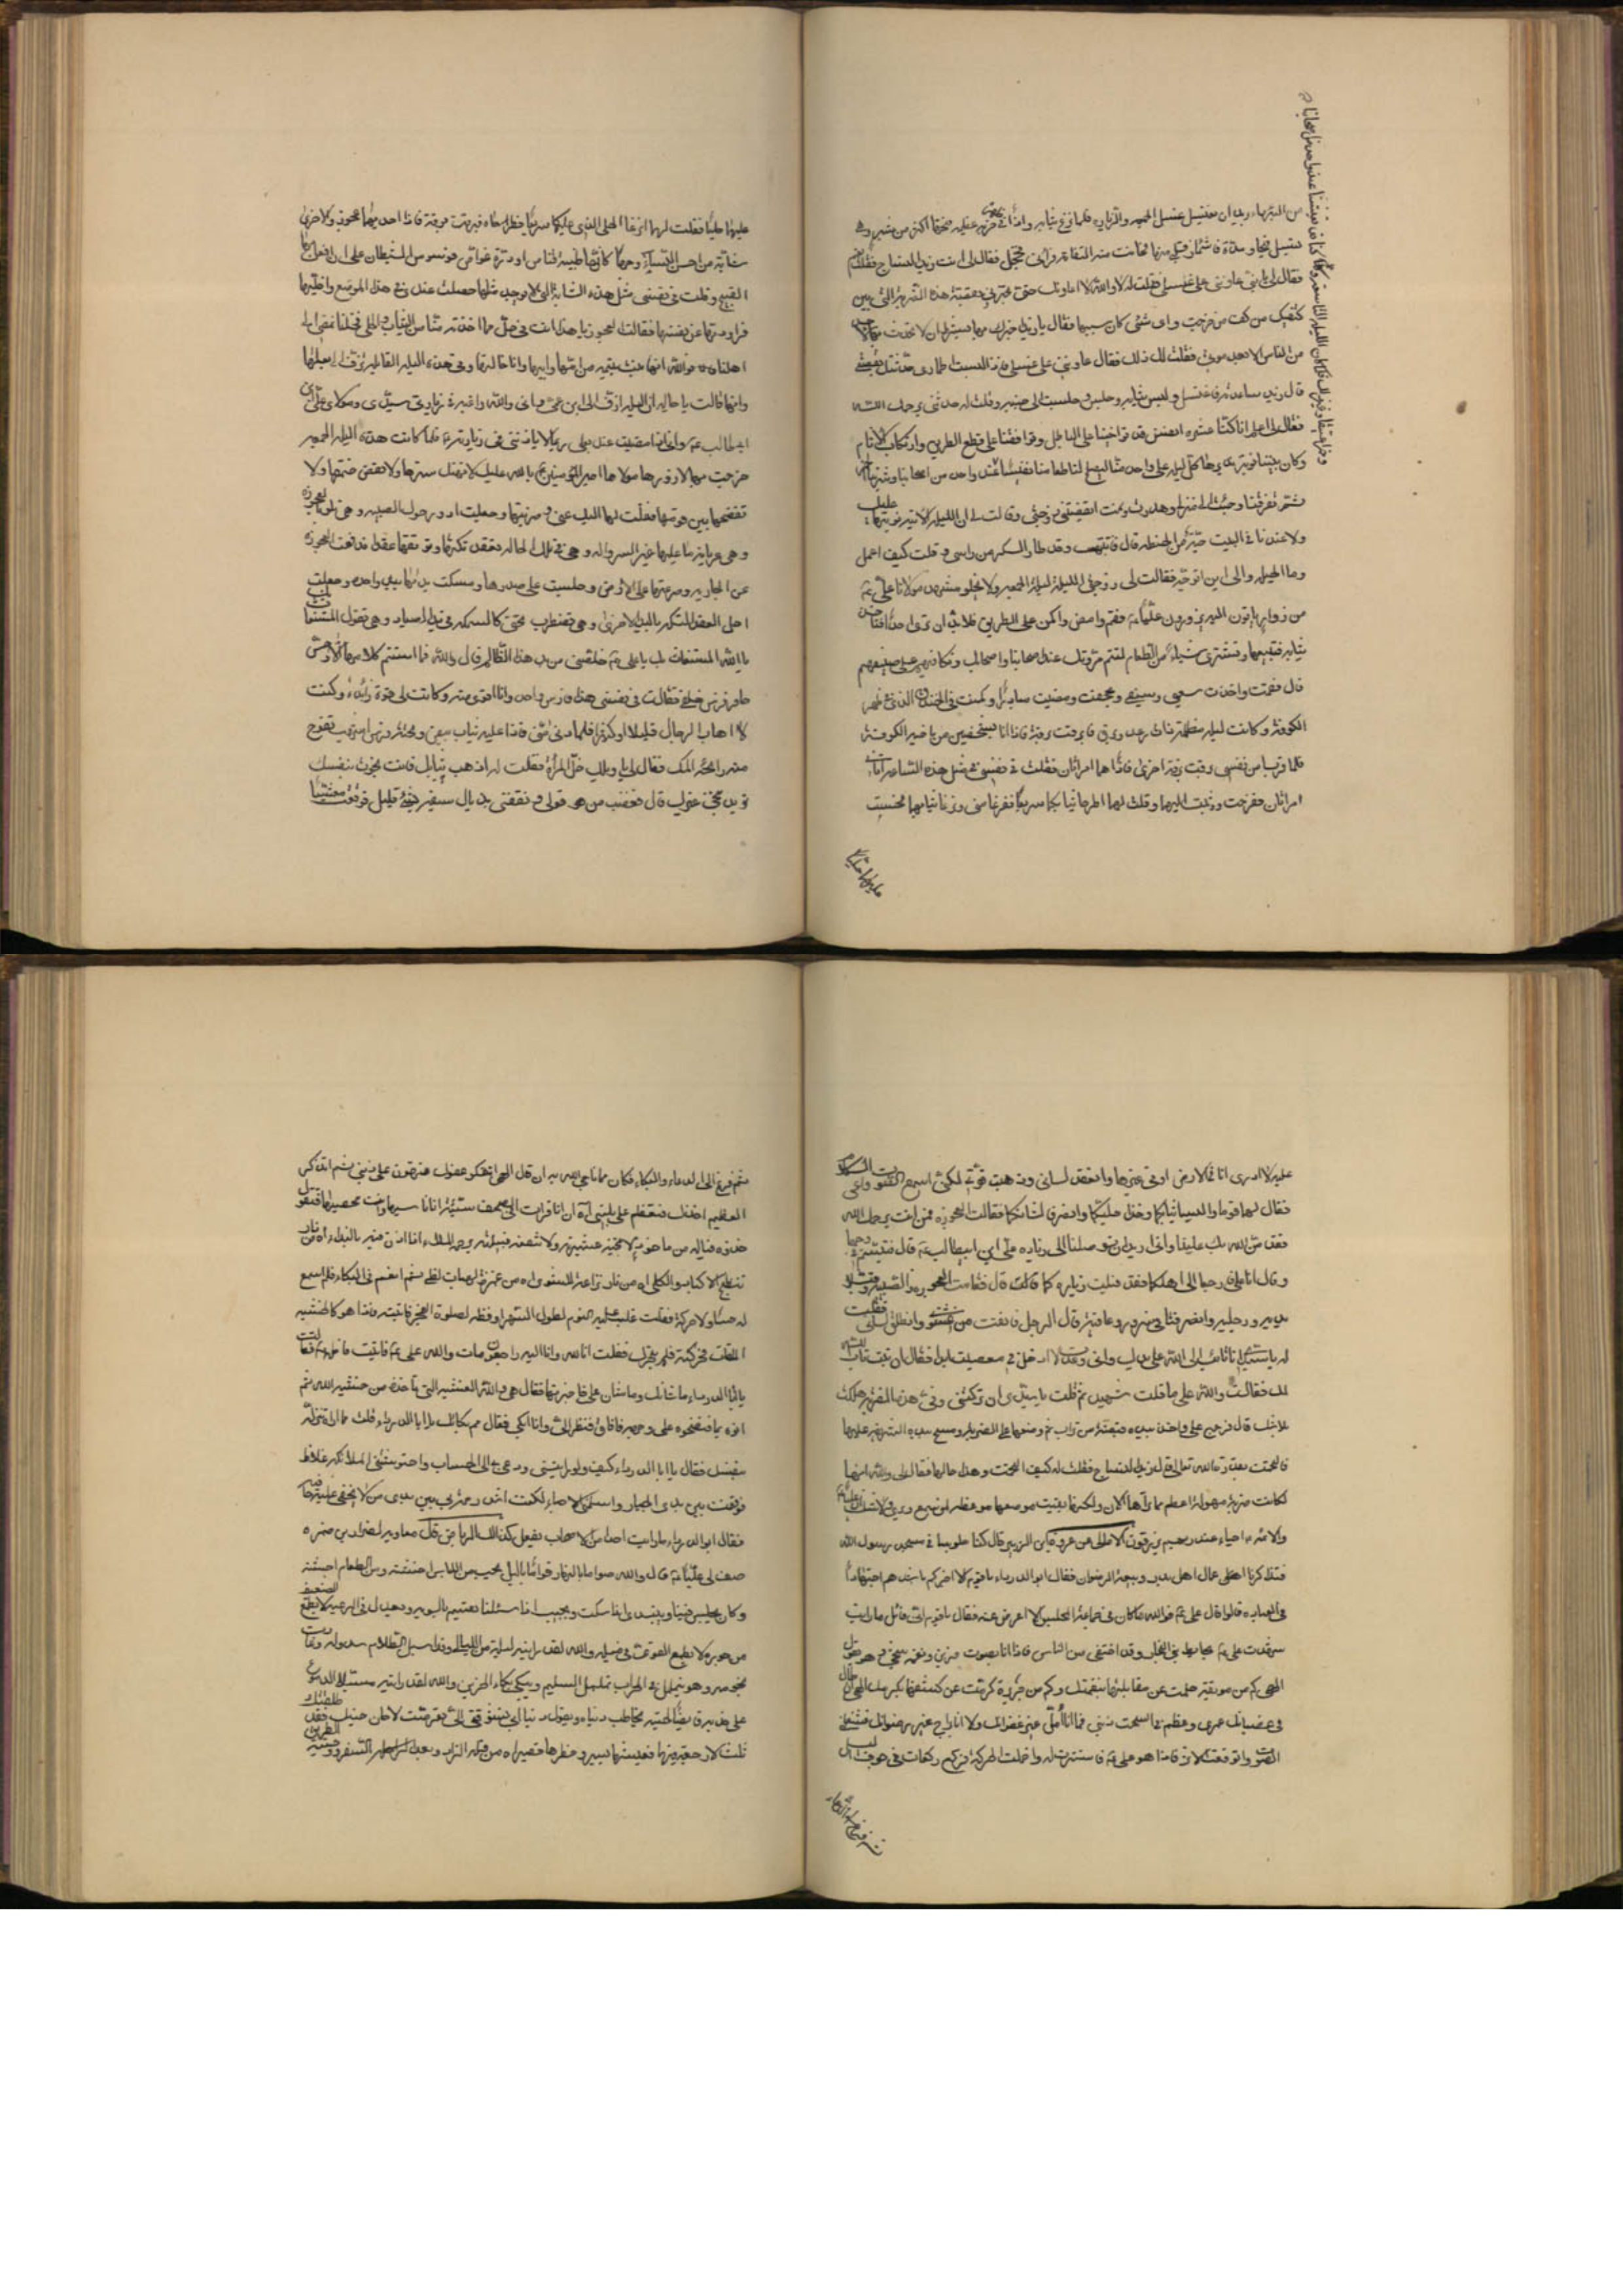 من البئر ماء يريد ان يغتسل غسل الجمعة والزيارة فلما نزع ثيابه واذا في ظهره ضربة عظيمة فتحتها اكثر من شبر وهي
تسيل قيحا ومدة فاشمأز قلبي منها فحانت منه التفاتة فرآني فخجل فقال لي انت زيد النساج فقلت نعم
فقال لي يا بني عاوني على غسلي فقلت له لا والله لا اعاونك حتى تخبرني بقصة هذه الضربة التي بين
كتفيك من كف من خرجت واي شيء كان سببها فقال يا زيد اخبرك بها بشرط ان لا تحدث بها احدا
من الناس الا بعد موتي فقلت لك ذلك فقال عاوني على غسلي فاذا لبست اطماري حدثتك بقصتي
قال زيد فساعدته فاغتسل ولبس ثيابه وجلس وجلست الى جنبه وقلت له حدثني يرحمك الله
فقال لي اعلم انا كنا عشرة انفس قد تواخينا على الباطل وتوافقنا على قطع الطريق وارتكاب الآثام
وكان بيننا نوبة نديرها كل ليلة على واحد منا ليصنع لنا طعاما نفيسا
ثم تفرقنا وجئت الى منزلي وهدأت ونمت ايقظتني زوجتي وقالت لي ان الليلة الآتية نوبتها عليك
ولا عندنا في البيت حبة من الحنطة قال فانتبهت وقد طار السكر من راسي وقلت كيف اعمل
وما الحيلة والى اين اتوجه فقالت لي زوجتي الليلة ليلة الجمعة ولا يخلو مشهد مولانا علي
من زوار ياتون اليه يزورونه فقم وامض واكمن على الطريق فلا بد ان ترى احدا فتاخذ
ثيابه فتبيعها وتشتري شيئا من الطعام لتتم مروتك عند اصحابك وتكافيهم على صنيعهم
قال فقمت واخذت سيفي وجحفتي ومضيت مبادرا وكمنت في الخندق الذي في ظهر
الكوفة وكانت ليلة مظلمة ذات رعد وبرق فابرقت برقة فاذا انا بشخصين من ناحية الكوفة
فلما قربا من نفسي برقت برقة اخرى فاذا هما امراتان فقلت في نفسي في مثل هذه الساعة اتاني
امراتان ففرحت ووثبت اليهما وقلت لهما اطرحا ثيابكما سريعا ففزعا مني ونزعا ثيابهما فحسست
عليهما حليا
عليهما حليا فقلت لهما انزعا الحلي الذي عليكما سريعا فطرحاه فبرقت برقة فاذا احديهما عجوز والاخرى
شابة من احسن النساء وجها كانها ظبية قناص او درة غواص فوسوس لي الشيطان على ان افعل بها
القبيح وقلت في نفسي مثل هذه الشابة التي لا يوجد مثلها حصلت عندي في هذا الموضع واخليها
فراودتها عن نفسها فقالت العجوز يا هذا انت في حل مما اخذته منا من الثياب والحلي فخلنا نمضي الى
اهلنا فوالله انها بنت يتيمة من امها وابيها وانا خالتها وفي هذه الليلة القابلة تزف الى بعلها
وانها قالت يا خالة ان الليلة ازف الى ابن عمي واني والله راغبة في زيارة سيدي ومولاي علي بن
ابي طالب واني اذا مضيت عند بعلي ربما لا ياذن لي في زيارته فلما كانت هذه الليلة الجمعة
خرجت بها لازورها مولاها امير المؤمنين فبالله عليك لا تهتك سترها ولا تفض ختمها ولا
تفضحها بين قومها فقلت لها اليك عني وضربتها وجعلت ادور حول الصبية وهي تلوذ بالعجوز
وهي عريانة ما عليها غير السروال وهي في تلك الحالة تعقد تكتها وتوثقها عقدا فدفعت العجوز
عن الجارية وصرعتها على الارض وجلست على صدرها ومسكت يديها بيد واحدة وجعلت
احل العقد التكة باليد الاخرى وهي تضطرب تحتي كالسمكة في يد الصياد وهي تقول المستغاث
يا الله المستغاث بك يا علي خلصني من يد هذا الظالم قال والله فما استتم كلامها الا وحس
حافر فرس خلفي فقلت في نفسي هذا فارس واحد وانا اقوى منه وكانت لي قوة زائدة وكنت
لا اهاب الرجال قليلا او كثيرا فلما دنى مني فاذا عليه ثياب بيض وتحته فرس اشهب تفوح
منه رائحة المسك فقال لي يا ويلك خل المراة فقلت له اذهب لشانك فانت نجوت بنفسك
تريد تنجي غيرك قال فغضب من قولي ونفحني بذبال سيفه بشيء قليل فوقعت مغشيا
علي لا ادري انا في الارض او في غيرها وانعقد لساني وذهبت قوتي لكن اسمع الصوت واعي الكلام
فقال لهما قوما والبسا ثيابكما وخذا حليكما وانصرفا لشانكما فقالت العجوز فمن انت يرحمك الله
فقد من الله بك علينا واني اريد ان توصلنا الى زيارة علي ابن ابي طالب قال فتبسم في وجهها
وقال انا علي ارجعا الى اهلكما فقد قبلت زيارتكما قال فقامت العجوز والصبية وقبلا
يديه ورجليه وانصرفتا في سرور وعافية قال الرجل فافقت من غشوتي وانطلق لساني فقلت
له يا سيدي انا تائب الى الله على يدك واني لا عدت ادخل في معصيته ابدا فقال ان تبت تاب الله
عليك فقلت والله على ما اقول شهيد ثم قلت يا سيدي ان تركتني وفي هذه الضربة هلكت
بلا شك قال فرجع علي واخذ بيده قبضة من تراب ثم وضعها على الضربة ومسح بيده الشريفة عليها
فالتحمت بقدرة الله تعالى قال زيد النساج فقلت له كيف التحمت وهذه حالها فقال لي والله انها
لكانت ضربة مهولة اعظم مما تراها الآن ولكنها بقيت موعظة لمن يسمع ويرى
الامالي عن عروة ابن الزبير قال كنا جلوسا في مسجد رسول الله
فتذاكرنا اعمال اهل بدر وبيعة الرضوان فقال ابو الدرداء يا قوم الا اخبركم باشدهم اجتهادا
في العبادة قالوا قال علي فوالله ما كان في جماعة المجلس الا اعرض عنه فقال يا قوم اني قائل ما رايت
شهدت علي بحايط بني النجار وقد اختفى من الناس فاذا انا بصوت حزين ونغمة شجي وهو يقول
الهي كم من موبقة حلمت عن مقابلتها بنقمتك وكم من جريرة تكرمت عن كشفها بكرمك الهي ان طال
في عصيانك عمري وعظم في الصحف ذنبي فما انا مؤمل غير غفرانك ولا انا براج غير رضوانك فشغلني
الصوت واقتفيت الاثر فاذا هو علي فاستترت له واخملت الحركة فركع ركعات في جوف الليل
ثم فزع الى الدعاء
ثم فزع الى الدعاء والبكاء فكان مما ناجى الله به ان قال الهي افكر في عفوك فتهون علي خطيئتي ثم اذكر
العظيم اخذك فتعظم علي بليتي آه ان انا قرات في الصحف سيئة انا ناسيها وانت محصيها فتقول
خذوه فياله من ماخوذ لا تنجيه عشيرته ولا تنفعه قبيلته يرحمه الملأ اذا اذن فيه بالنداء آه من نار
تنضج الاكباد والكلى آه من نار نزاعة للشوى آه من غمرة من لهبات لظى ثم انعم في البكاء فلم اسمع
له حسا ولا حركة فقلت غلب عليه النوم لطول السهر اوقظه لصلوة الفجر فاتيته فاذا هو كالخشبة
الملقاة فحركته فلم يتحرك فقلت انا لله وانا اليه راجعون مات والله علي فاتيت
يا ابا الدرداء ما شانك وما شان علي فاخبرتها فقال هي والله الغشية التي تاخذه من خشية الله ثم
اتوه بماء فنضحوه على وجهه فافاق ونظر الي وانا ابكي فقال مم بكاؤك يا ابا الدرداء قلت مما اراه تنزله
بنفسك فقال يا ابا الدرداء كيف ولو رايتني ودعي بي الى الحساب واحتوشتني الملائكة غلاظ
فوقفت بين يدي الجبار واسلمني الاحباء لكنت اشد رحمة لي بين يدي من لا يخفى عليه خافية
فقال ابو الدرداء ما رايت احدا من الاصحاب يفعل كذلك الرياض قال معاوية لضرار بن ضمرة
صف لي عليا قال والله صواما بالنهار قواما بالليل يحب من اللباس اخشنه ومن الطعام اجشبه
وكان يجلس فينا ويبتدي اذا سكتنا ويجيب اذا سئلنا يقسم بالسوية ويعدل في الرعية لا يخاف الضعيف
من جوره ولا يطمع القوي في ميله والله لقد رايته ليلة من الليالي وقد اسبل الظلام سدوله وغارت
نجومه وهو يتململ في المحراب تململ السليم ويبكي بكاء الحزين والله لقد رايته مسبلا الدموع
على خده قابضا لحيته يخاطب دنياه ويقول يا دنيا ابي تشوقت الي تعرضت لا حان حينك فقد طلقتك
ثلثا لا رجعة فيها فعيشك يسير وخطرك حقير آه من قلة الزاد وبعد السفر ووحشة الطريق